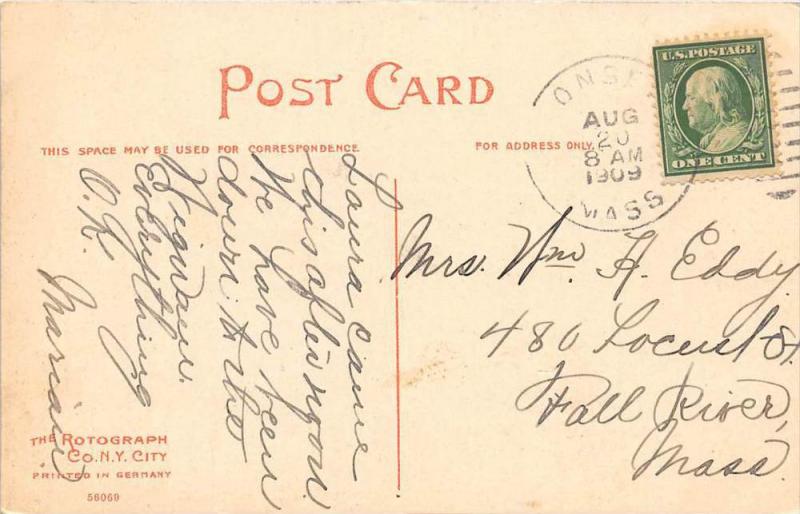 POST CARD
THIS SPACE MAY BE USED FOR CORRESPONDENCE.
FOR ADDRESS ONLY.
U.S. POSTAGE
ONE CENT
ONSE
AUG
20
8 AM
1909
MASS
Laura came
this afternoon.
We have been
down to the
Wigwam.
Everything
O.K.
Marian
Mrs. Wm. H. Eddy
480 Locust St.
Fall River,
Mass.
THE ROTOGRAPH
CO. N.Y. CITY
PRINTED IN GERMANY
56069